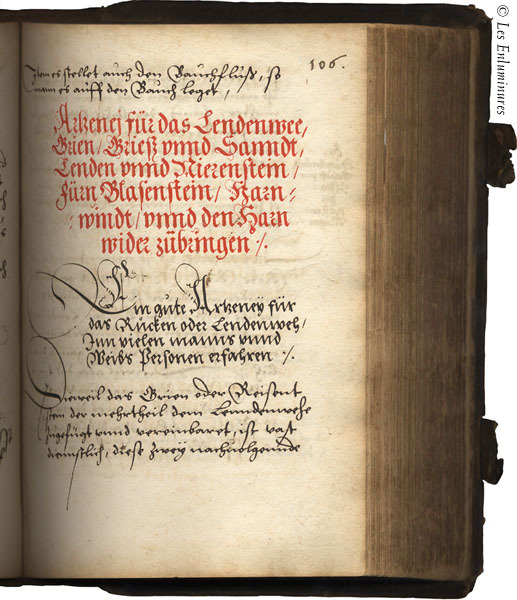 106.
Item es stellet auch den Bauchfluß, so
man es auff den Bauch leget,
Artzenej für das Lendenwee,
Grien/ Grieß vnnd Sanndt,
Lenden vnnd Nierenstein/
fürn Blasenstein/ Harn-
windt/ vnnd den Harn
wider zübringen ⁒.
Ein gute Artzeney für
das Rucken oder Lendenweh/
Inn vielen manns vnnd
Weibs Personen erfahren ⁒.
Dieweil das Grien oder Reisent
stein der mehrtheil dem Lenndenwehe
zugefügt vnnd vereinbaret, ist vast
dienstlich, diese zwey nachuolgennde
© Les Enluminures